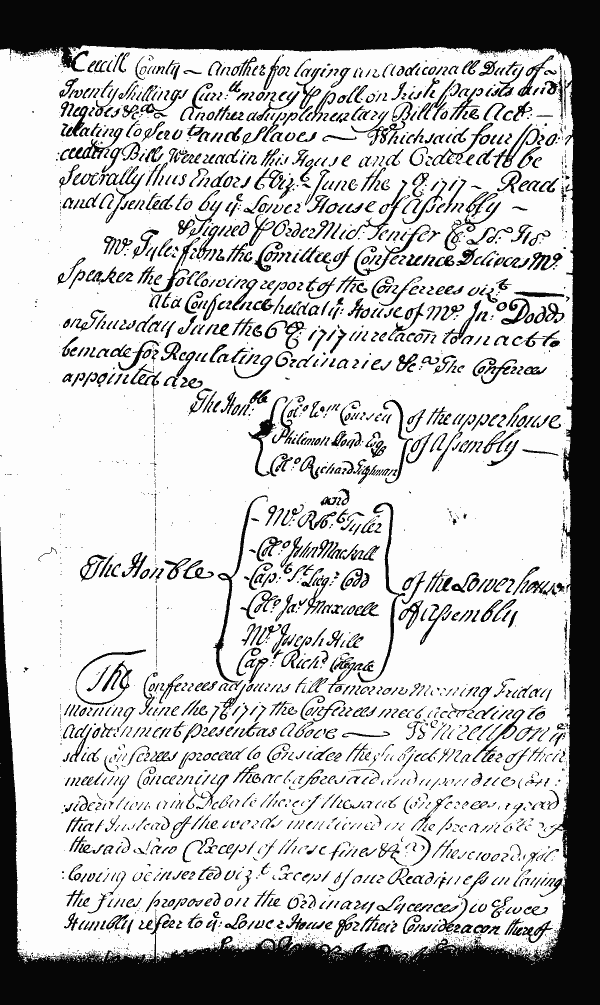 Cecill County – Another for laying an Addiconall Duty of ~
Twenty Shillings Curr.t money ⅌ poll on Irish Papists and
Negroes &c.a – Another a Supplementary Bill to the Act –
relating to Serv.ts and Slaves – Which said four Pro
ceeding Bills Were read in this House and Ordered to be
Severally thus Endors't Viz.t – June the 7th 1717 – Read
and Assented to by y.e Lower House of Assembly –
& Signed ⅌ Order Mic. Jenifer
Mr. Tyler from the Comittee of Conference Delivers Mr.
Speaker the following report of the Conferrees viz.t —
At a Conference held at y.e House of Mr. Jno. Dodds
on Thursday June the 6th 1717 in relacon to an act to
be made for Regulating Ordinaries &c.a The Conferrees
appointed are
The Hon.ble
Colo. Wm. Coursey
Philemon Lloyd Esq
Colo. Richard Tilghman
of the upper house
of Assembly —
and
– Mr. Robt. Tyler
– Colo. John Mackall
– Capt. St. Legr. Codd
– Colo. Jas. Maxwell
Mr. Joseph Hill
Capt. Richd.
The Honble
of the Lower house
of Assembly
The Conferrees adjourns till tomorrow Morning Friday
morning June the 7th 1717 the Conferrees meet according to
Adjornment Present as Above — Whereupon y.e
said Conferrees proceed to Consider the Subject Matter of their
meeting Concerning the act aforesaid and upon due Con
sideration and Debate thereof the said Conferrees agreed
that Instead of the words mentioned in the preamble of
the said Law (Except of those fines &c.a) these words fol
lowing be inserted viz.t Except of our Readiness in laying
the fines proposed on the Ordinary Lycences) w.ch wee
Humbly referr to y.e Lower House for their Consideracon thereof